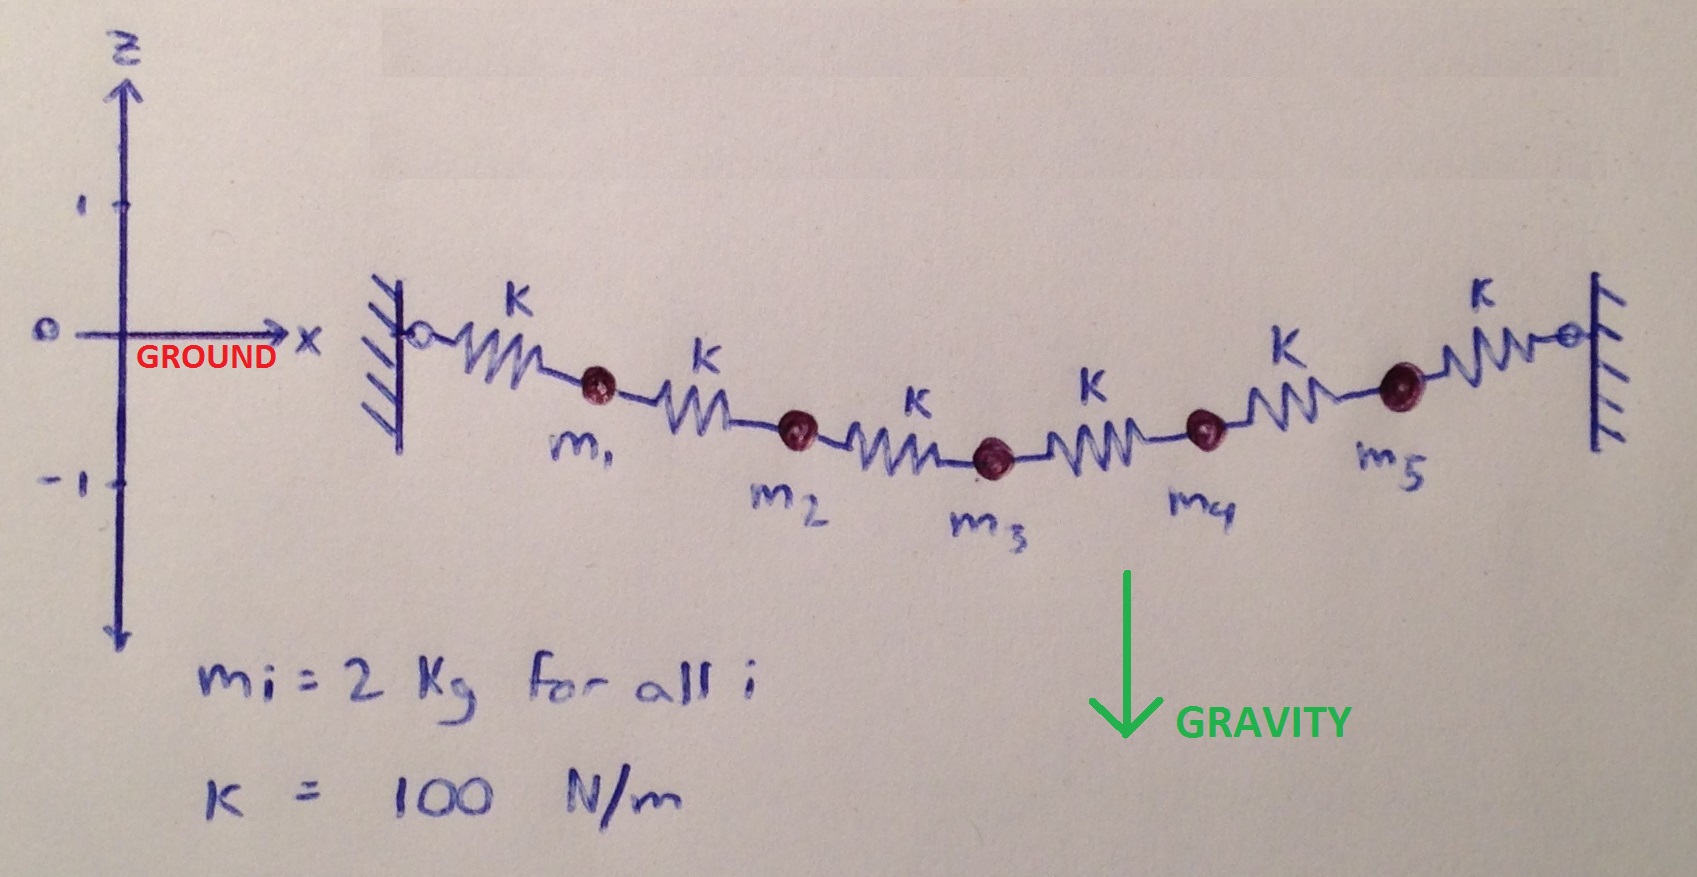 z
1
0
GROUND
x
-1
K
K
K
K
K
K
m1
m2
m3
m4
m5
GRAVITY
mi = 2 Kg for all i
K = 100 N/m